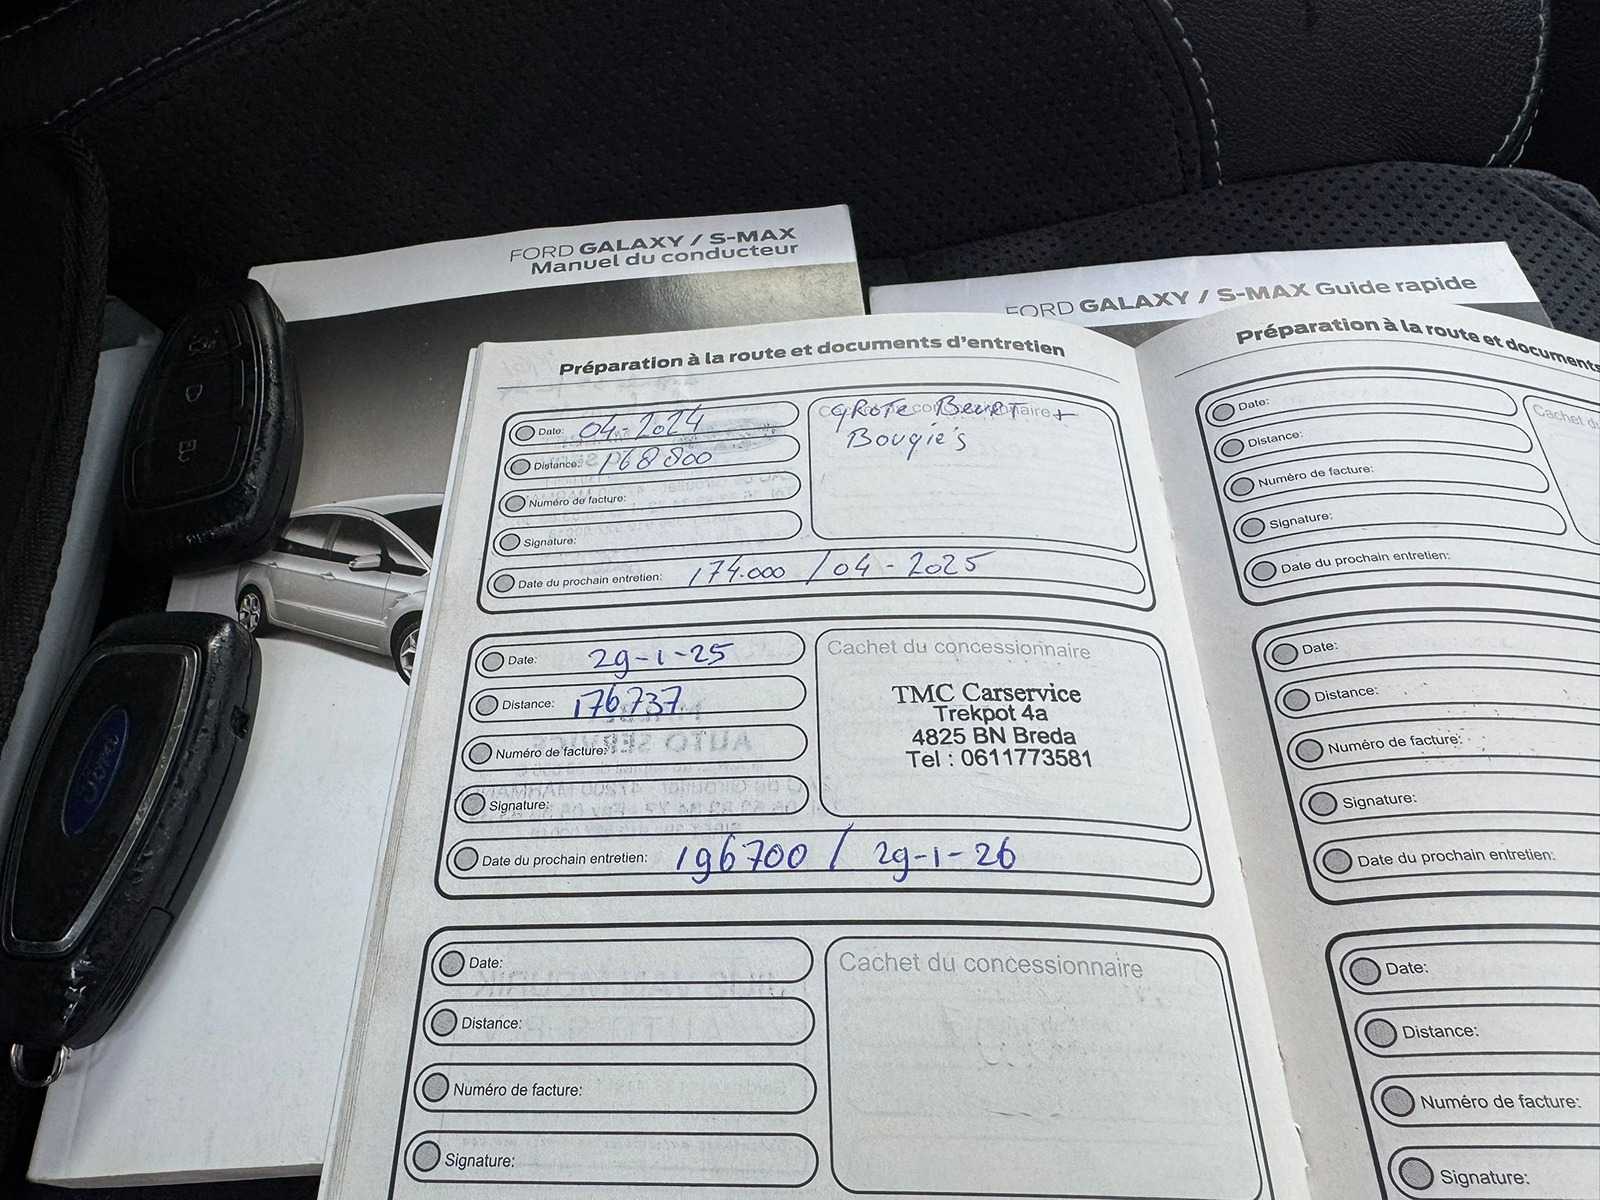 FORD GALAXY / S-MAX
Manuel du conducteur
FORD GALAXY / S-MAX Guide rapide
Ford
Préparation à la route et documents d'entretien
Date: 04-2024
Distance: 168800
Numéro de facture:
Signature:
Date du prochain entretien: 174.000 / 04-2025
GROTE Beurt +
Bougie's
Date: 29-1-25
Distance: 176737
Numéro de facture:
Signature:
Date du prochain entretien: 196700 / 29-1-26
Cachet du concessionnaire
TMC Carservice
Trekpot 4a
4825 BN Breda
Tel : 0611773581
Date:
Distance:
Numéro de facture:
Signature:
Cachet du concessionnaire
Préparation à la route et documents
Date:
Distance:
Numéro de facture:
Signature:
Date du prochain entretien:
Cachet du
Date:
Distance:
Numéro de facture:
Signature:
Date du prochain entretien:
Date:
Distance:
Numéro de facture:
Signature: